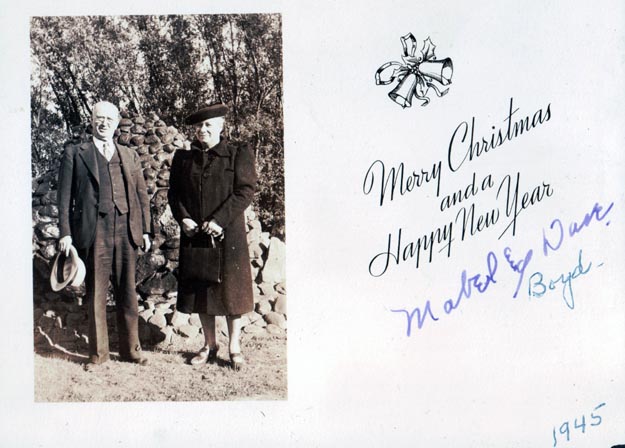 Merry Christmas
and a
Happy New Year
Mabel & Dave
Boyd
1945